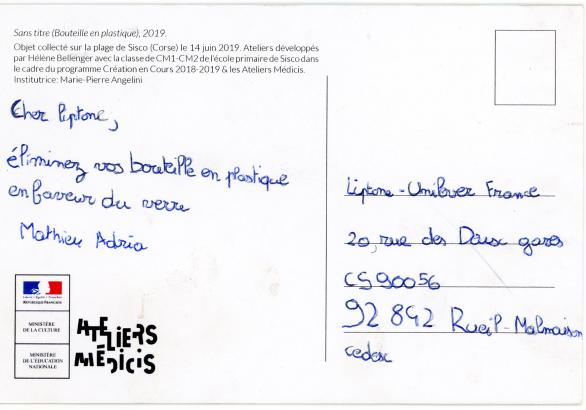 Sans titre (Bouteille en plastique), 2019.
Objet collecté sur la plage de Sisco (Corse) le 14 juin 2019. Ateliers développés
par Hélène Bellenger avec la classe de CM1-CM2 de l'école primaire de Sisco dans
le cadre du programme Création en Cours 2018-2019 & les Ateliers Médicis.
Institutrice: Marie-Pierre Angelini
Cher liptone,
éliminez vos bouteille en plastique
en faveur du verre
Mathieu Adria
Liberté • Égalité • Fraternité
RÉPUBLIQUE FRANÇAISE
MINISTÈRE
DE LA CULTURE
MINISTÈRE
DE L'ÉDUCATION
NATIONALE
ATELIERS
MÉDICIS
Liptone - Unilever France
20, rue des Deux gares
CS 90056
92 842 Rueil-Malmaison
cedex